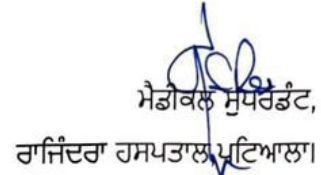 ਮੈਡੀਕਲ ਸੁਪਰਡੰਟ,
ਰਾਜਿੰਦਰਾ ਹਸਪਤਾਲ ਪਟਿਆਲਾ।